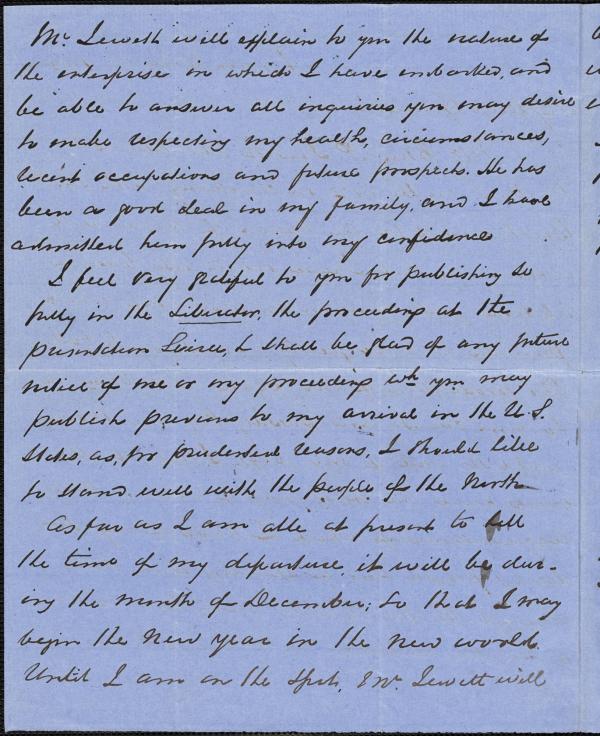 Mr. Jewett will explain to you the nature of
the enterprise in which I have embarked, and
be able to answer all inquiries you may desire
to make respecting my health, circumstances,
recent occupations and future prospects. He has
been a good deal in my family, and I have
admitted him fully into my confidence
I feel very grateful to you for publishing so
fully in the Liberator, the proceedings at the
presentation Soiree, & shall be glad of any future
notice of me or my proceedings wh. you may
publish previous to my arrival in the U. S.
States, as, for prudential reasons, I should like
to stand well with the people of the North
As far as I am able at present to tell
the time of my departure, it will be dur-
ing the month of December; so that I may
begin the New year in the new world.
Until I am on the spot, Mr. Jewett will